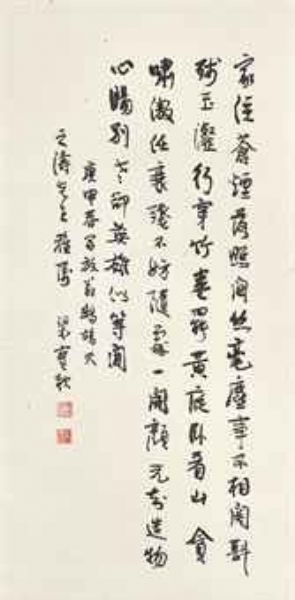 家住蒼煙落照間絲毫塵事不相關斟
殘玉瀣行穿竹卷罷黃庭卧看山貪
嘯傲任衰殘不妨隨處一開顏元知造物
心腸別老卻英雄似等閒
庚申春寫放翁鷓鴣天
之濤先生雅属 梁實秋